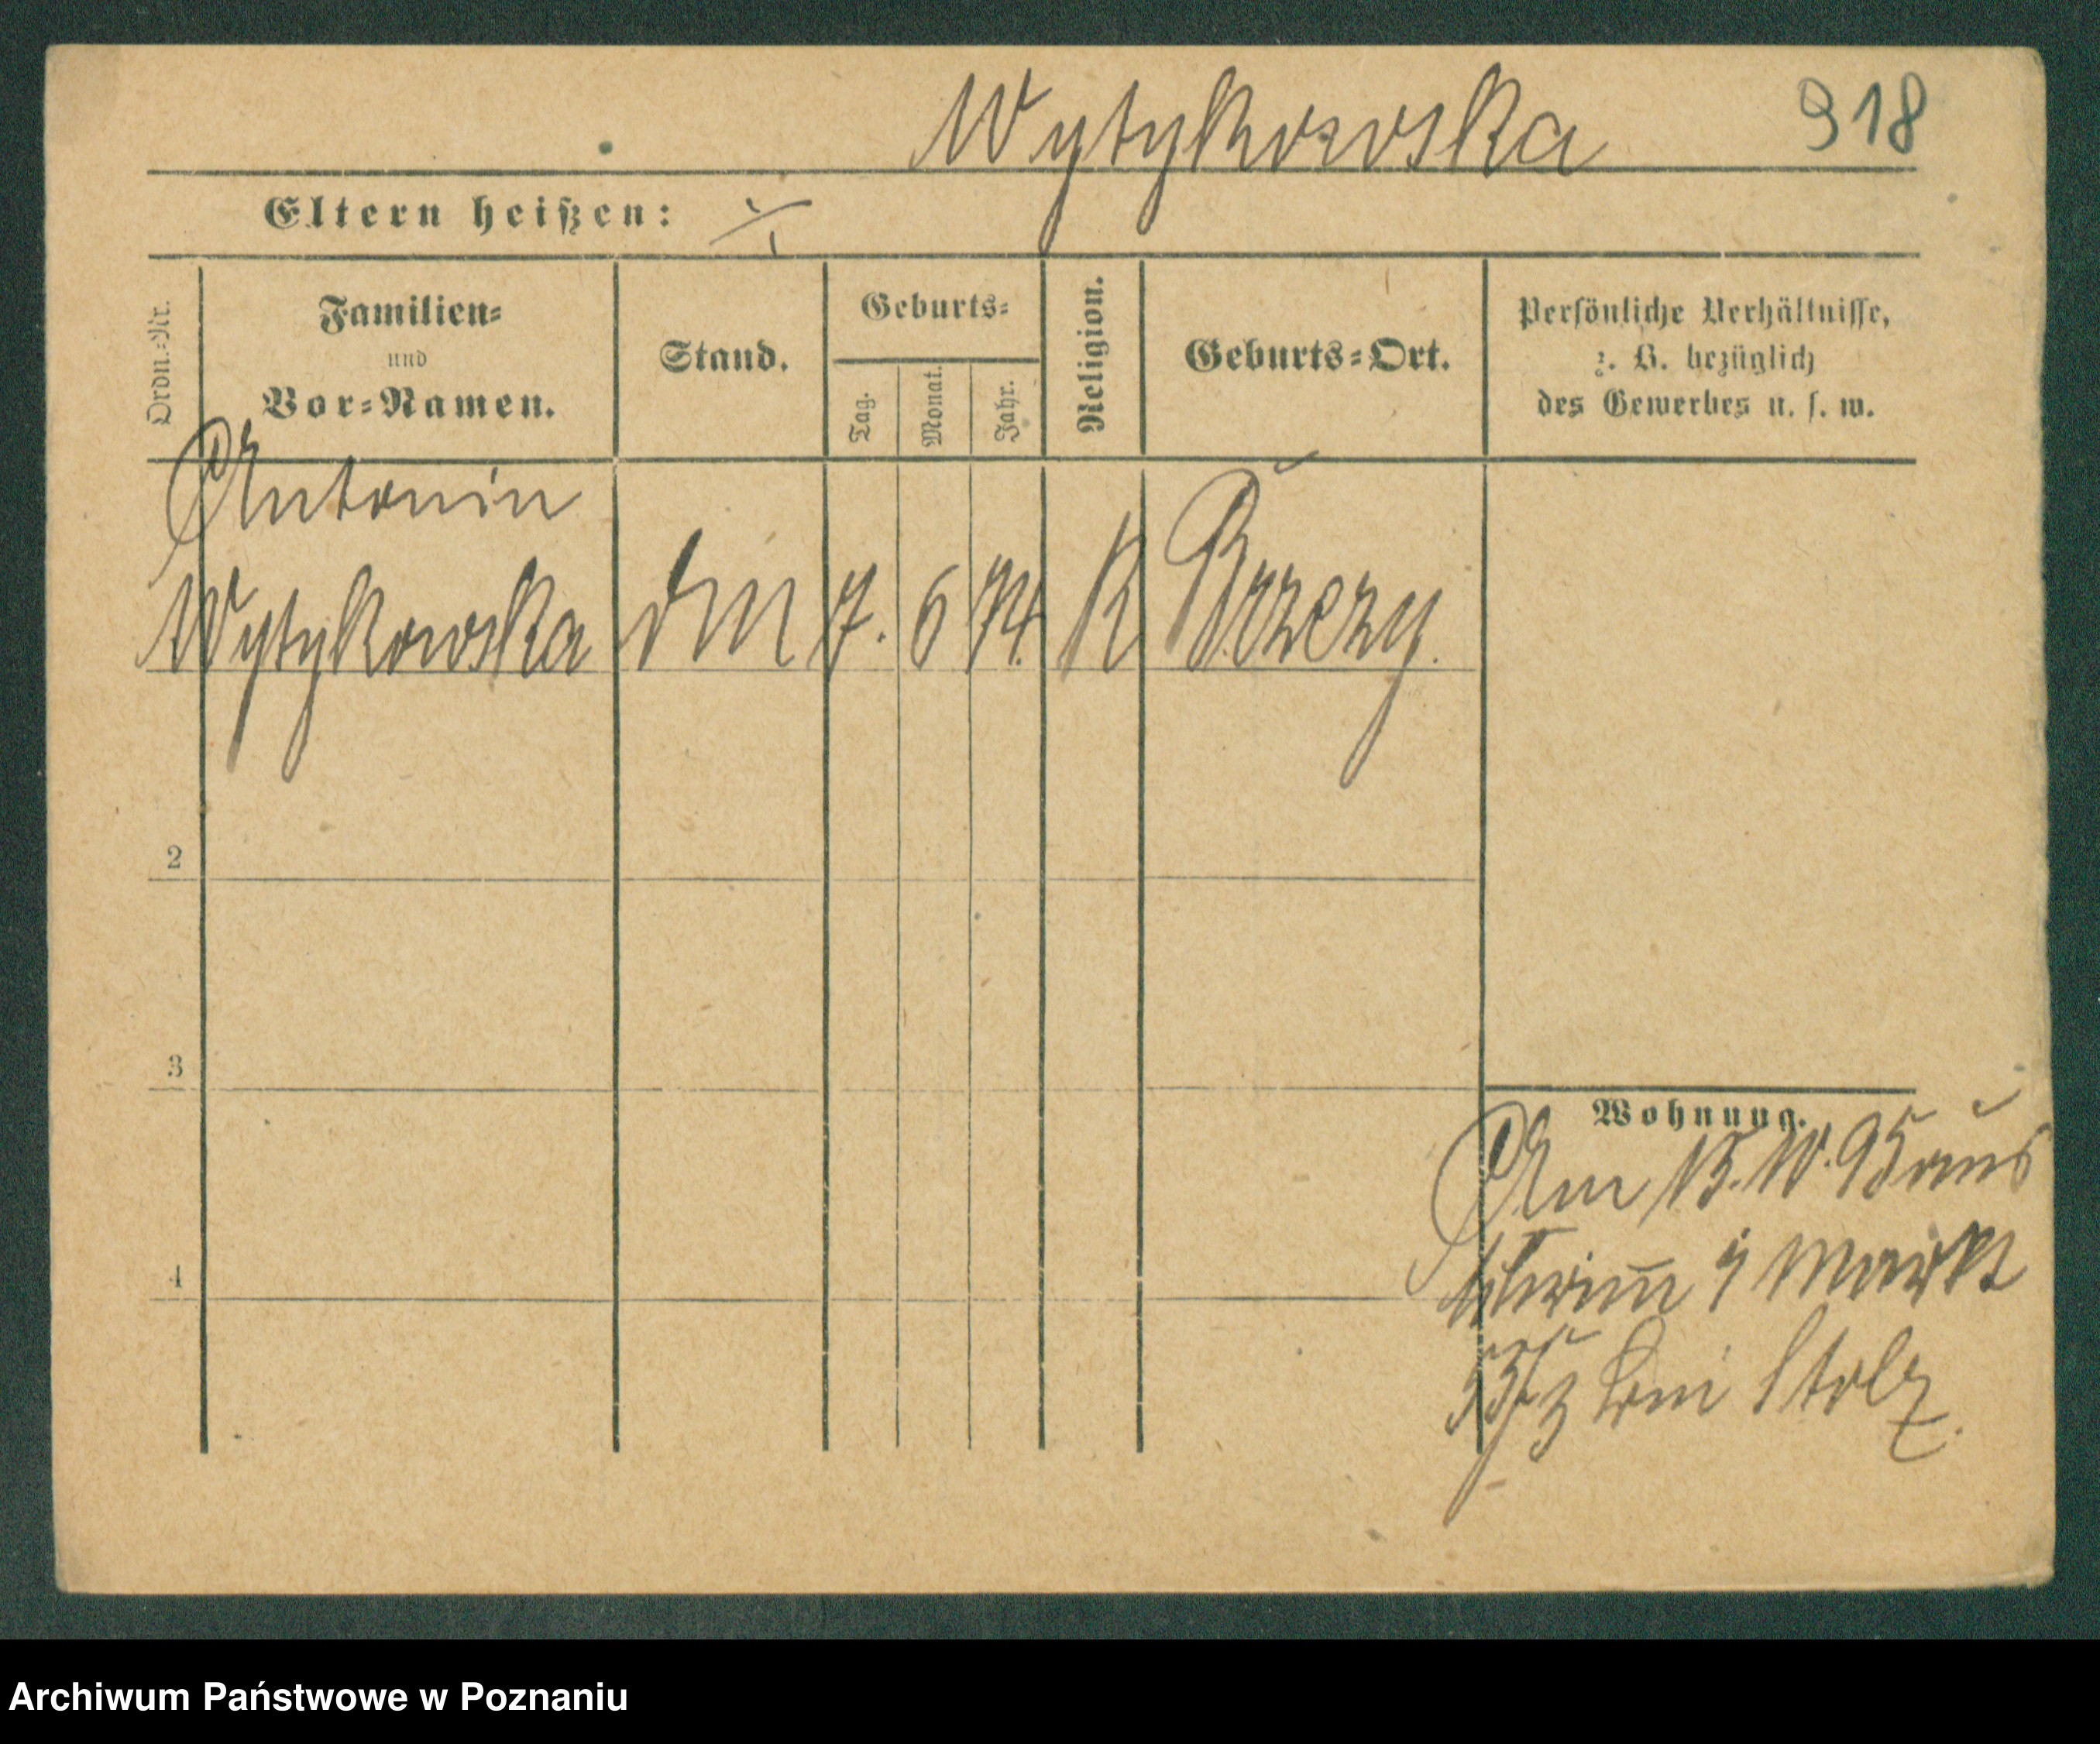 Wytykowska 918
Eltern heißen: ./.
Ordn.-Nr.
Familien-
und
Vor-Namen.
Stand.
Geburts-
Tag.
Monat.
Jahr.
Religion.
Geburts-Ort.
Persönliche Verhältnisse,
z. B. bezüglich
des Gewerbes u. s. w.
Antonin
Wytykowska 7. 6 74. K
2
3
4
Wohnung.
Am 15.10.95 aus
Markt
53 bei Stolz.
Archiwum Państwowe w Poznaniu